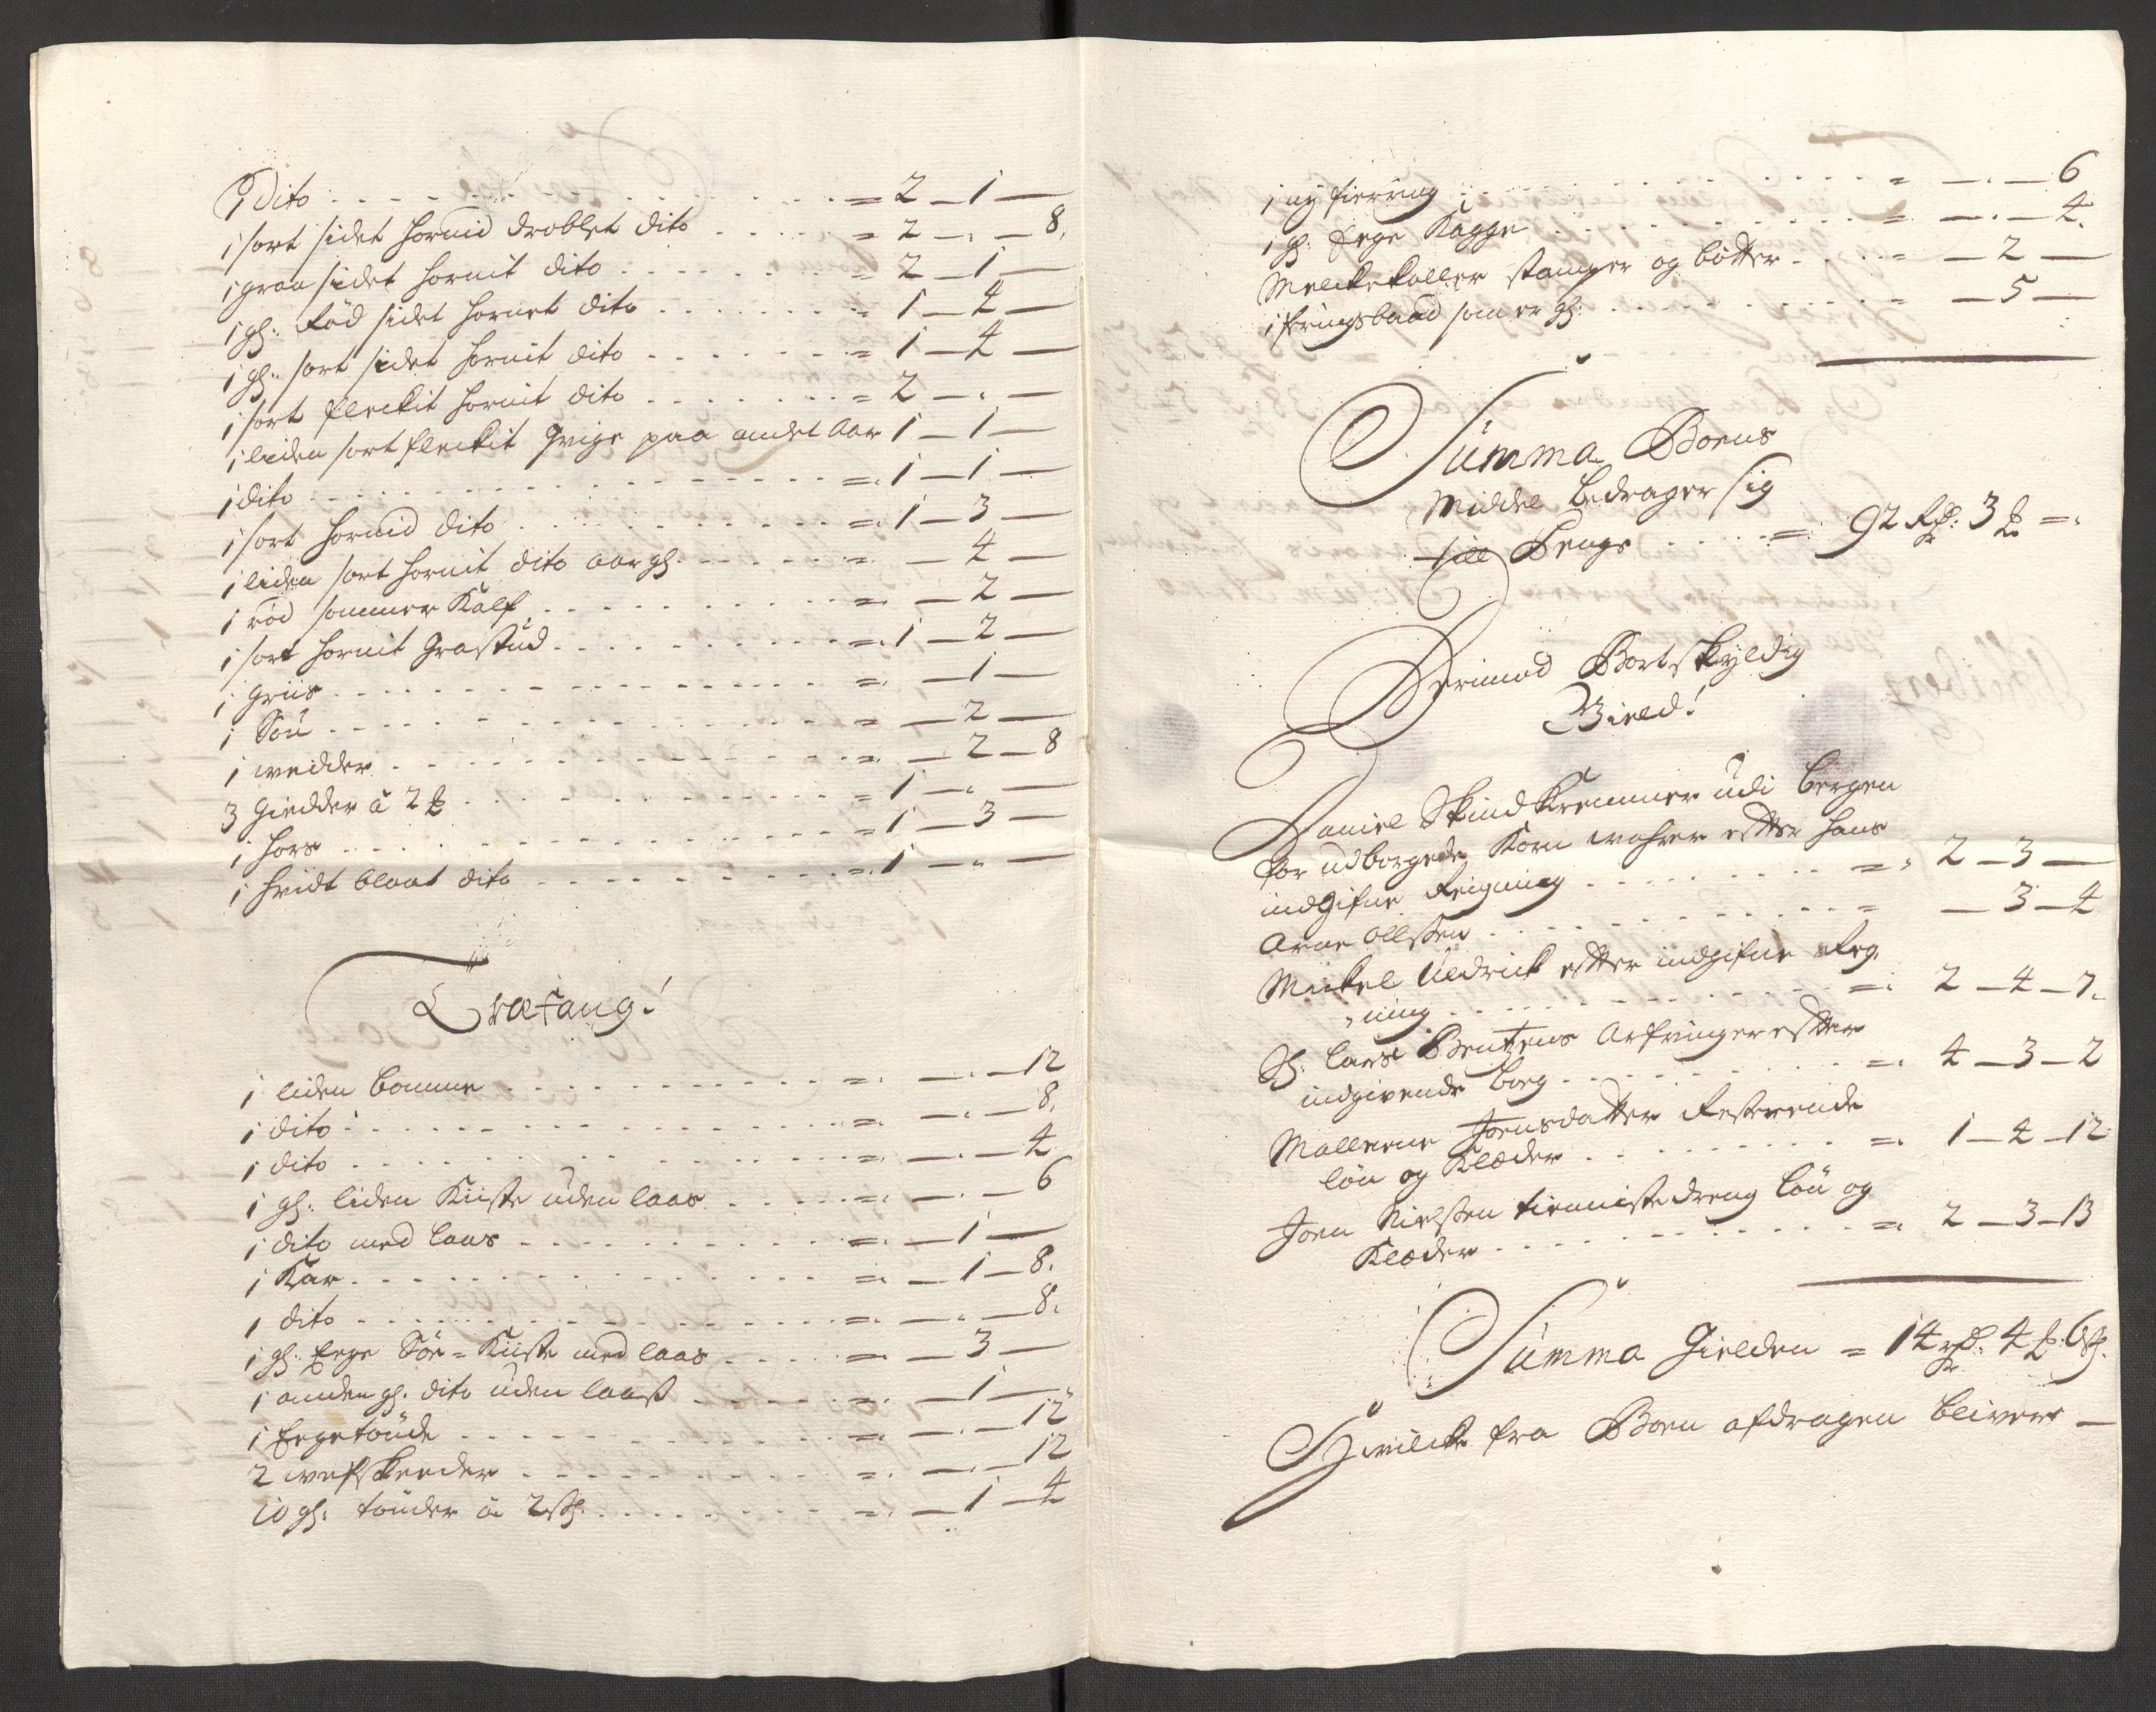 1 dito = 2 — 1 —
1 sort sidet hornid droblet dito = 2 — " — 8.
1 graa sidet hornit dito = 2 — 1 —
1 gl: Rød sidet hornet dito = 1 — 4 —
1 gl: sort sidet hornit dito = 1 — 4 —
1 sort fleckit hornit dito = 2 — " —
1 liden sort fleckit Qvige paa andet Aar 1 — 1 —
1 dito = 1 — 1 —
1 sort hornid dito = 1 — 3 —
1 liden sort hornit dito aargl: = — 4 —
1 rød sommer Kalf = — 2 —
1 sort hornit Grastud = 1 — 2 —
1 Griis = — 1 —
1 Söu = — 2 —
1 wedder = — 2 — 8
3 Giedder á 2 = 1 — " —
1 hors = 1 — 3 —
1 hvidt blaat dito = 1 — " —
Træfang!
1 liden bomme = — " — 12
1 dito = — " — 8.
1 dito = — " — 4
1 gl: liden Kiiste uden laas = — " — 6
1 dito med laas = — 1 —
1 Kar = — 1 — 8.
1 dito = — " — 8.
1 gl: Eege Söe = Kiiste med laas = — 3 —
1 anden gl: dito uden laass = — 1 —
1 Eegetönde = — " — 12
2 wefskeeder = — " — 12
10 gl: tönder á 2 sk: = — 1 — 4
1 ny fierring = — " — 6
1 gl: Eege Kagge = — " — 4.
Melckekoller stamper og bötter = — 2 —
1 som er gl: = — 5 —
Summa Boens
Middel bedrager sig
till Penge = 92 Rdr: 3
Derimod Bortskyldig
Gield!
Daniel Skindkremmer udi Bergen
for udborgede Korn wahrer efter hans
indgifne Reigning = 2 — 3 —
Arne Olssen = — 3 — 4
Mickel Uldrick efter indgifne Reg.
ning = 2 — 4 — 7.
Sl: Lars Bentzens Arfvinger efter
indgivende borg = 4 — 3 — 2
Mallene Joensdatter Resterende
lön og Klæder = 1 — 4 — 12
Joen Nielssen tienniste dreng lön og
Klæder = 2 — 3 — 13
Summa Gielden = 14 rdr: 4 6 sk.
Hvilcke fra Boen afdragen blivers —